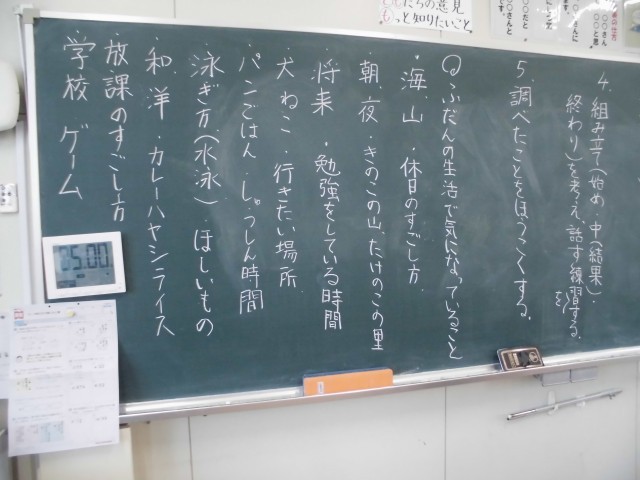 4．組み立て（始め・中（結果）・
終わり）を考え、話す練習する。
を
5．調べたことをほうこくする。
Q ふだんの生活で気になっていること
・海、山 ・休日のすごし方
・朝、夜 ・きのこの山、たけのこの里
・将来 ・勉強をしている時間
・犬 ねこ ・行きたい場所
・パン ごはん ・しゅっしん時間
・泳ぎ方（水泳） ほしいもの
・和 洋 ・カレーハヤシライス
・放課のすごし方
学校 ゲーム
たちの意見
もっと知りたいこと。
〇〇さんと
〇〇だと
〇〇さん
〇〇と思